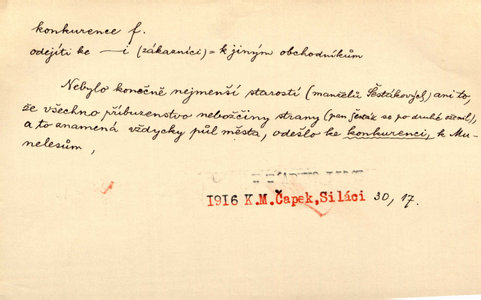 konkurence f.
odejíti ke —i (zákazníci) = k jiným obchodníkům
Nebylo konečně nejmenší starostí (manželů Šestákových) ani to,
že všechno příbuzenstvo nebožčiny strany (pan Šesták se po druhé oženil),
a to znamená vždycky půl města, odešlo ke konkurenci, k Mu-
nelesům,
1916 K.M.Čapek, Siláci 30, 17.